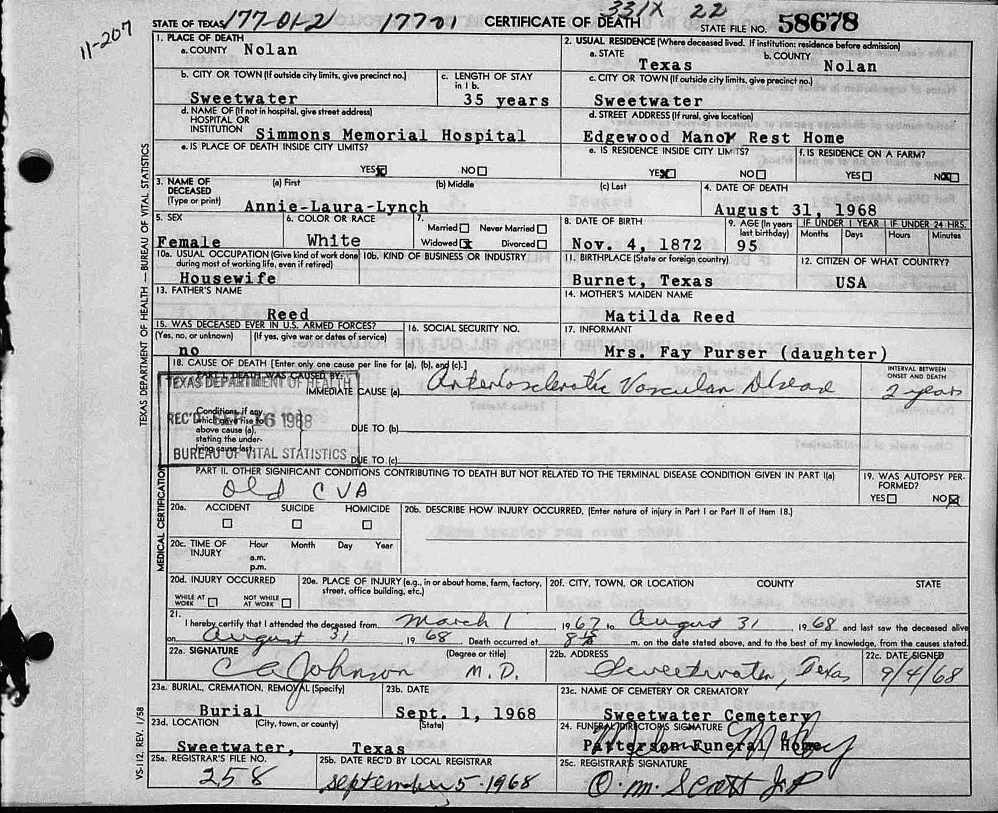 11-207
STATE OF TEXAS 177-01-2 17701 CERTIFICATE OF DEATH 331X 22 STATE FILE NO. 58678
1. PLACE OF DEATH
a. COUNTY Nolan
2. USUAL RESIDENCE (Where deceased lived. If institution: residence before admission)
a. STATE Texas b. COUNTY Nolan
b. CITY OR TOWN (If outside city limits, give precinct no.) Sweetwater
c. LENGTH OF STAY in 1 b. 35 years
c. CITY OR TOWN (If outside city limits, give precinct no.) Sweetwater
d. NAME OF (If not in hospital, give street address) HOSPITAL OR INSTITUTION Simmons Memorial Hospital
d. STREET ADDRESS (If rural, give location) Edgewood Manor Rest Home
e. IS PLACE OF DEATH INSIDE CITY LIMITS? YES X NO
e. IS RESIDENCE INSIDE CITY LIMITS? YES X NO
f. IS RESIDENCE ON A FARM? YES NO X
3. NAME OF DECEASED (Type or print) (a) First (b) Middle (c) Last
Annie-Laura-Lynch
4. DATE OF DEATH August 31, 1968
5. SEX Female
6. COLOR OR RACE White
7. Married Never Married Widowed X Divorced
8. DATE OF BIRTH Nov. 4, 1872
9. AGE (In years last birthday) 95
IF UNDER 1 YEAR Months Days
IF UNDER 24 HRS. Hours Minutes
10a. USUAL OCCUPATION (Give kind of work done during most of working life, even if retired) Housewife
10b. KIND OF BUSINESS OR INDUSTRY
11. BIRTHPLACE (State or foreign country) Burnet, Texas
12. CITIZEN OF WHAT COUNTRY? USA
13. FATHER'S NAME Reed
14. MOTHER'S MAIDEN NAME Matilda Reed
15. WAS DECEASED EVER IN U.S. ARMED FORCES? (Yes, no, or unknown) (If yes, give war or dates of service) no
16. SOCIAL SECURITY NO.
17. INFORMANT Mrs. Fay Purser (daughter)
18. CAUSE OF DEATH [Enter only one cause per line for (a), (b), and (c).]
PART I. DEATH WAS CAUSED BY:
IMMEDIATE CAUSE (a) Arteriosclerotic Vascular Disease
INTERVAL BETWEEN ONSET AND DEATH 2 years
Conditions, if any which gave rise to above cause (a), stating the underlying cause last.
DUE TO (b)
DUE TO (c)
TEXAS DEPARTMENT OF HEALTH
REC'D 16 1968
BUREAU OF VITAL STATISTICS
PART II. OTHER SIGNIFICANT CONDITIONS CONTRIBUTING TO DEATH BUT NOT RELATED TO THE TERMINAL DISEASE CONDITION GIVEN IN PART I(a)
Old CVA
19. WAS AUTOPSY PERFORMED? YES NO X
20a. ACCIDENT SUICIDE HOMICIDE
20b. DESCRIBE HOW INJURY OCCURRED. (Enter nature of injury in Part I or Part II of Item 18.)
20c. TIME OF INJURY Hour Month Day Year
a.m.
p.m.
20d. INJURY OCCURRED
WHILE AT WORK NOT WHILE AT WORK
20e. PLACE OF INJURY (e.g., in or about home, farm, factory, street, office building, etc.)
20f. CITY, TOWN, OR LOCATION COUNTY STATE
21. I hereby certify that I attended the deceased from March 1 1967 to August 31 1968 and last saw the deceased alive
on August 31 1968 Death occurred at m. on the date stated above, and to the best of my knowledge, from the causes stated.
22a. SIGNATURE (Degree or title) C A Johnson M.D.
22b. ADDRESS Sweetwater, Texas
22c. DATE SIGNED 9/4/68
23a. BURIAL, CREMATION, REMOVAL (Specify) Burial
23b. DATE Sept. 1, 1968
23c. NAME OF CEMETERY OR CREMATORY Sweetwater Cemetery
23d. LOCATION (City, town, or county) (State) Sweetwater, Texas
24. FUNERAL DIRECTOR'S SIGNATURE
Patterson Funeral Home
25a. REGISTRAR'S FILE NO. 258
25b. DATE REC'D BY LOCAL REGISTRAR September 5-1968
25c. REGISTRAR'S SIGNATURE O.M. Scott J.P.
TEXAS DEPARTMENT OF HEALTH — BUREAU OF VITAL STATISTICS
MEDICAL CERTIFICATION
VS-112. REV. 1/58